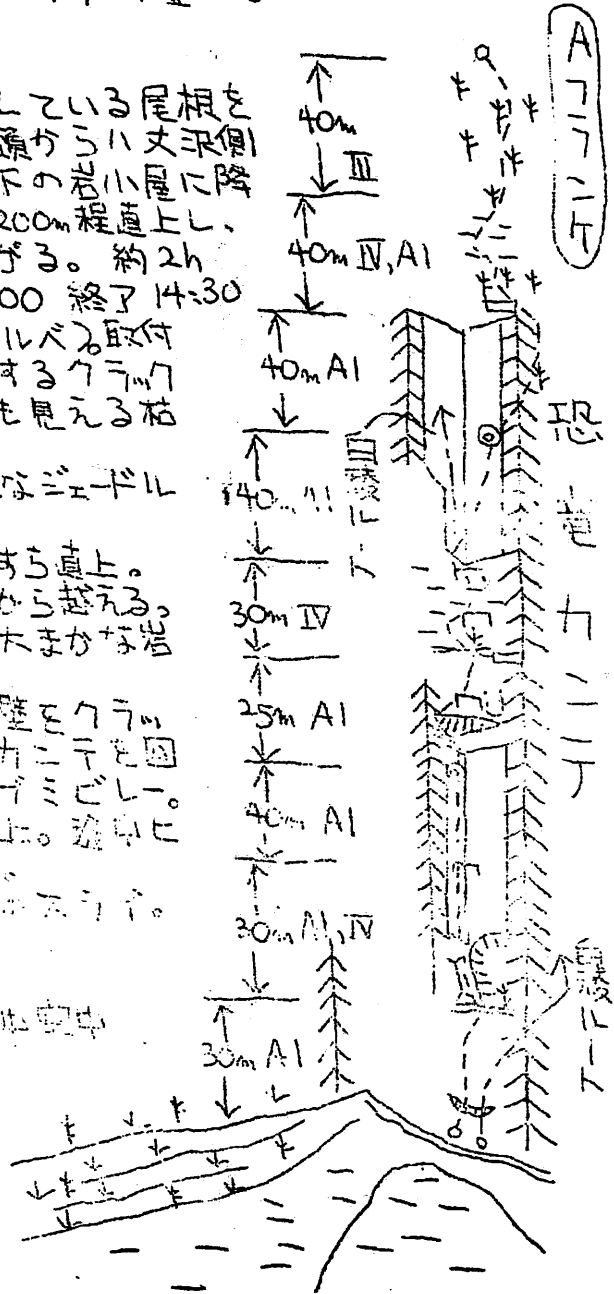 Aフランケ
している尾根を
頭から八丈沢側
下の岩小屋に降
200m程直上し、
げる。約2h
00 終了14:30
ルベつ。取付
するクラック
も見える枯
なジェードル
すら直上。
から越える。
大まかな岩
壁をクラッ
カンテを回
ブミビレー。
40m
III
40m IV, A1
40m A1
40m
30m IV
25m A1
40m A1
30m A1, IV
30m A1
目稜ルート
恐竜カンテ
ルート